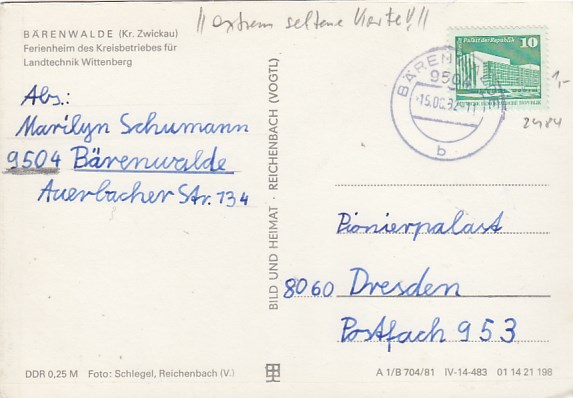 !! extrem seltene Karte !!!
BÄRENWALDE (Kr. Zwickau)
Ferienheim des Kreisbetriebes für
Landtechnik Wittenberg
Abs.:
Marilyn Schumann
9504 Bärenwalde
Auerbacher Str. 134
BILD UND HEIMAT · REICHENBACH (VOGTL)
Palast der Republik 10
1,-
2484
b
Pionierpalast
8060 Dresden
Postfach 953
DDR 0,25 M Foto: Schlegel, Reichenbach (V.)
A 1/B 704/81 IV-14-483 01 14 21 198